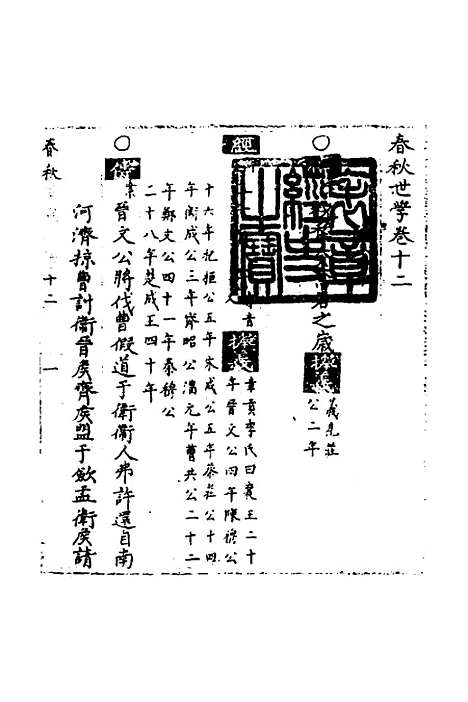 春秋世學卷十二
○
之歲
義見莊
公二年
經
章貢李氏曰襄王二十
午晉文公四午陳穆公
十六年杞桓公五年宋成公五年蔡莊公十四
年衛成公三年齊昭公潘元年曹共公二十二
年鄭文公四十一年秦穆公
二十八年楚成王四十年
○
傳
晉文公將伐曹假道于衛衛人弗許還自南
河濟掠曹討衛晉矦齊矦盟于斂盂衛矦請
春秋
十二
一